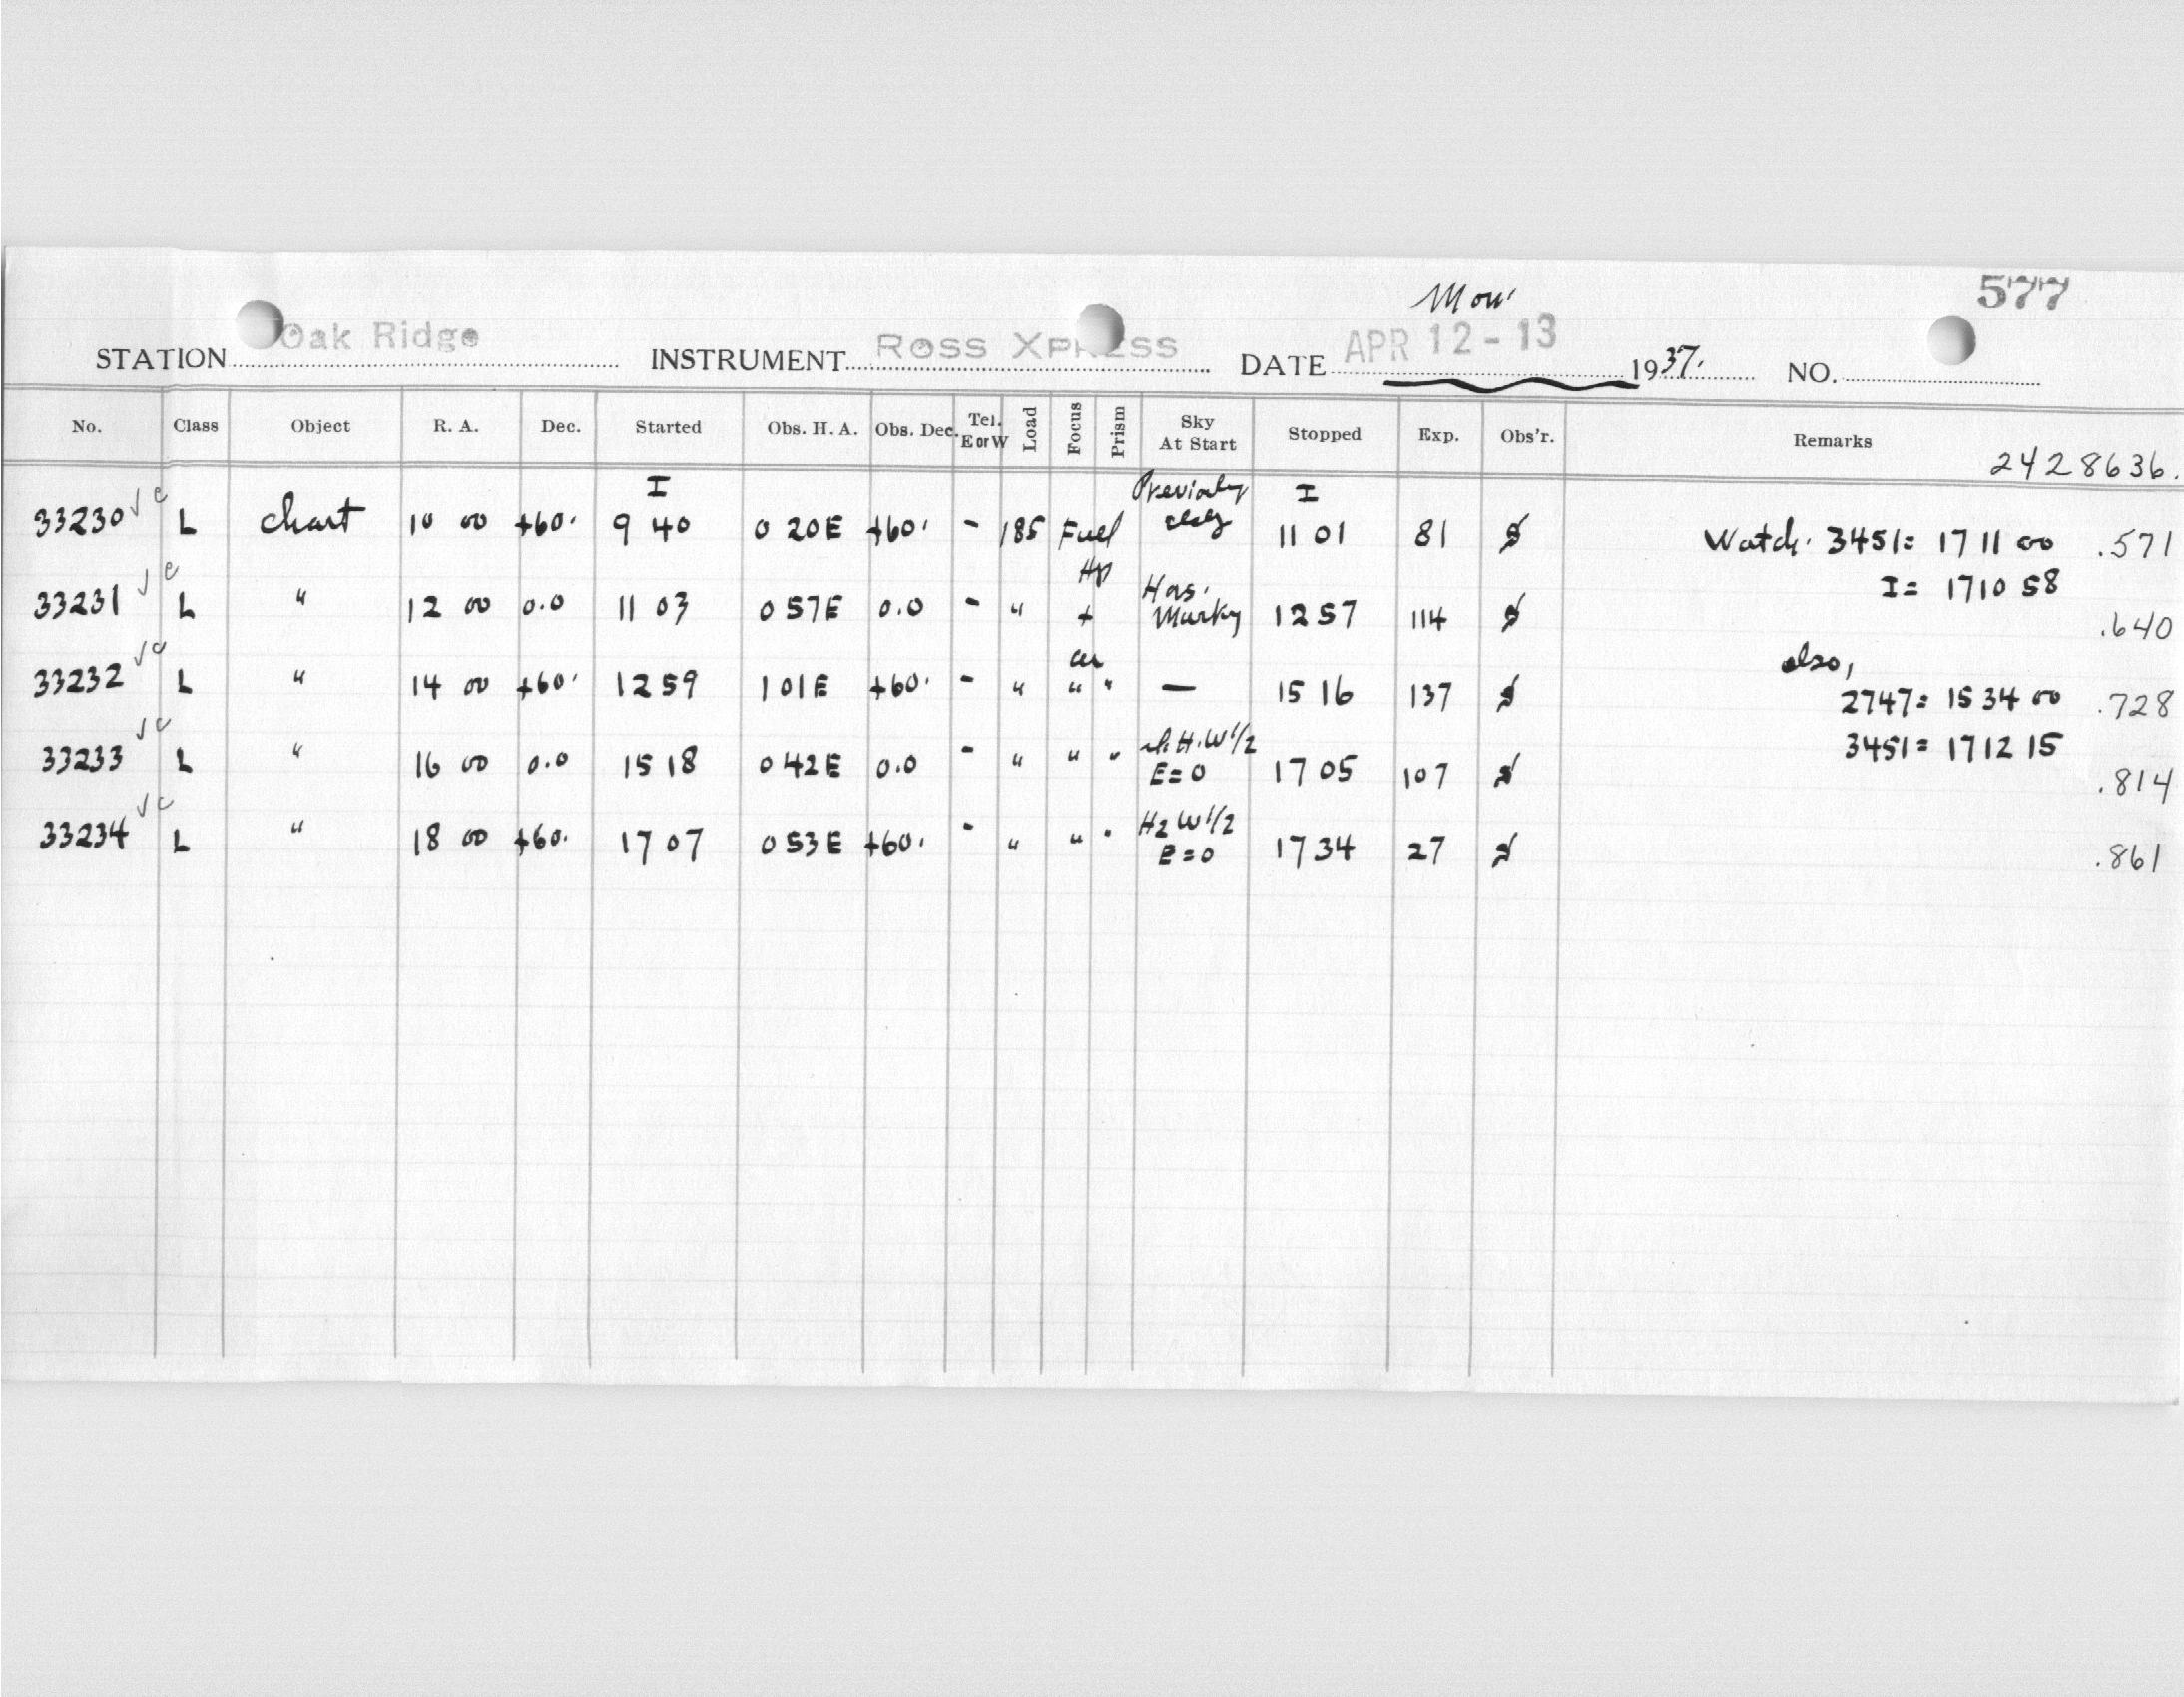 Mon
577
STATION Oak Ridge INSTRUMENT Ross XPRESS DATE APR 12-13 1937. NO.
No. Class Object R. A. Dec. Started Obs. H. A. Obs. Dec. Tel. E or W Load Focus Prism Sky At Start Stopped Exp. Obs'r. Remarks
2428636.
I I
33230 √c L chart 10 00 +60. 9 40 0 20E +60. - 185 Fuel 11 01 81 Watch. 3451= 17 11 00 .571
I= 17 10 58
33231 √c L " 12 00 0.0 11 03 0 57E 0.0 - " + Has. Murky 12 57 114 .640
also,
33232 √c L " 14 00 +60. 12 59 1 01E +60. - " " " — 15 16 137 2747= 15 34 00 .728
3451= 17 12 15
33233 √c L " 16 00 0.0 15 18 0 42E 0.0 - " " " H. W 1/2 E=0 17 05 107 .814
33234 √c L " 18 00 +60. 17 07 0 53E +60. - " " " Hz W 1/2 E=0 17 34 27 .861